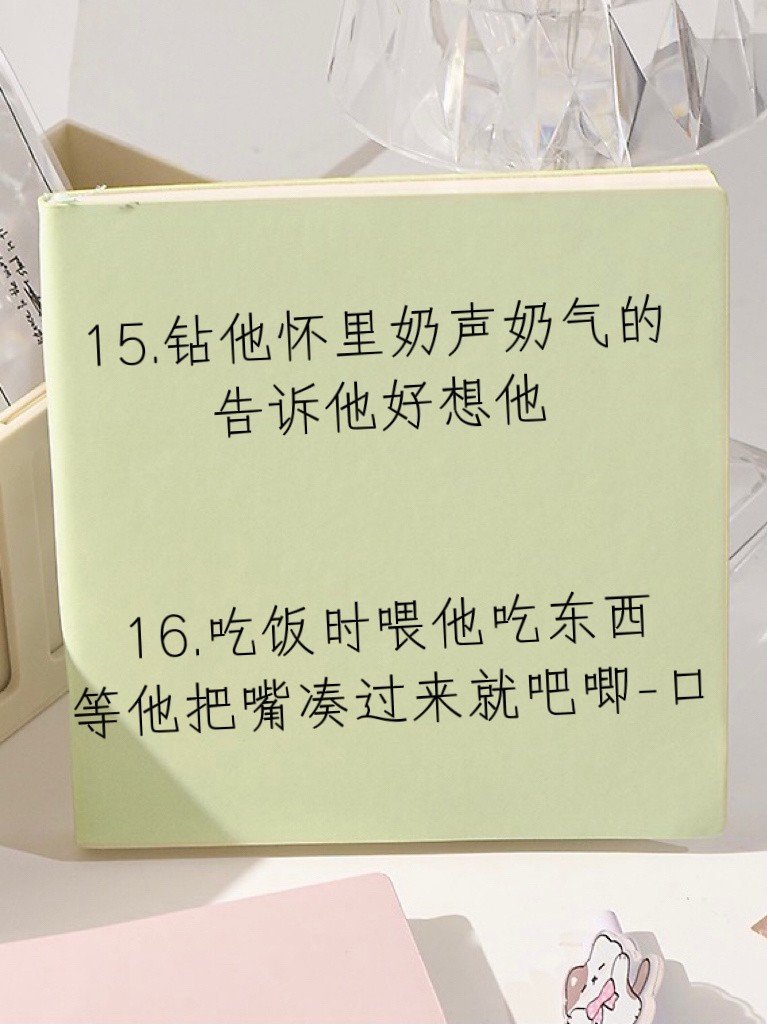 15.钻他怀里奶声奶气的
告诉他好想他
16.吃饭时喂他吃东西
等他把嘴凑过来就吧唧-口